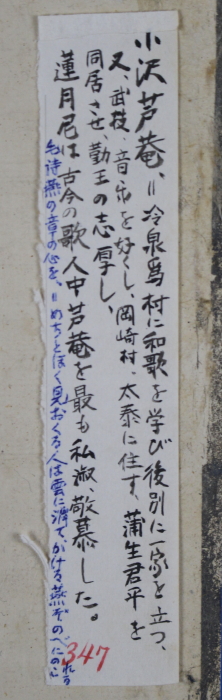 小沢芦庵、＝冷泉為村に和歌を学び後別に一家を立つ、
又、武技、音乐を好くし、岡崎村、太秦に住す、蒲生君平を
同居させ、勤王の志厚し、
蓮月尼は古今の歌人中芦庵を最も私淑敬慕した。
毛詩燕の章の心を、＝めぢとほく見おくる人は雲に消てかける燕ぞのべに
347